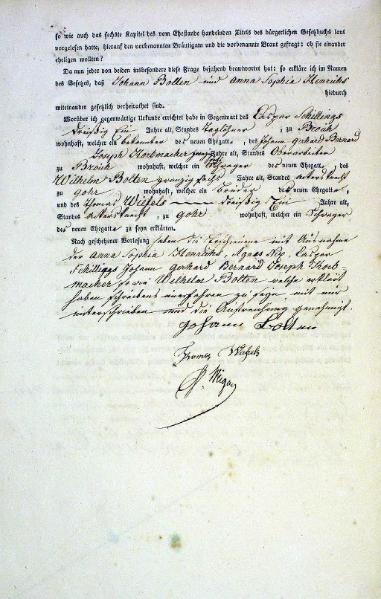 so wie auch das sechste Kapitel des vom Ehestande handelnden Titels des bürgerlichen Gesetzbuchs laut
vorgelesen hatte, hierauf den vorbenannten Bräutigam und die vorbenannte Braut gefragt: ob sie einander
ehelichen wollten?
Da nun jedes von beiden insbesondere diese Frage bejahend beantwortet hat: so erkläre ich im Namen
des Gesetzes, daß Johann Bolten und Anna Sophia Henrichs
hiedurch
miteinander gesetzlich verheirathet sind.
Worüber ich gegenwärtige Urkunde errichtet habe in Gegenwart des Caspar Schillings
dreißig Jahre alt, Standes Taglöhner, zu Broich
wohnhaft, welcher ein bekannter des neuen Ehegatte, des Johann gerhard Bernard
Joseph Jahre alt, Standes
zu Broich wohnhaft, welcher ein Schwager des neuen Ehegatte, des
Wilhelm Bolten zwanzig Jahre alt, Standes Ackersknecht
zu gohr wohnhaft, welcher ein Bruder des neuen Ehegatte
und des Thomas dreißig Jahre alt,
Standes Ackersknecht, zu gohr wohnhaft, welcher ein Schwager
des neuen Ehegatte zu seyn erklärten.
Nach geschehener Vorlesung haben die mit Ausnahme
der Anna Sophia Henrichs, Agnes, Caspar
Schillings Johann gerhard Bernard Joseph
macher sowie Wilhelm Bolten welche erklärt
haben Schreibens unerfahren zu seyn, mit mir
unterschrieben und die genehmigt.
Johann Bolten